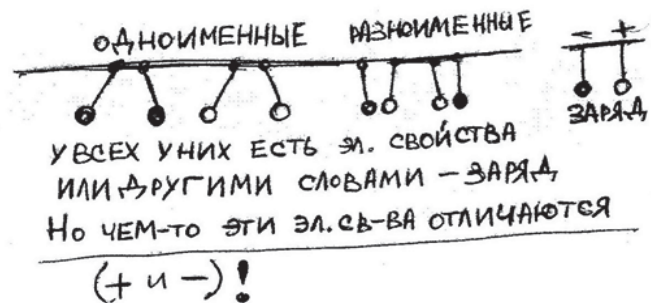 ОДНОИМЕННЫЕ РАЗНОИМЕННЫЕ
− +
ЗАРЯД
У ВСЕХ У НИХ ЕСТЬ ЭЛ. СВОЙСТВА
ИЛИ ДРУГИМИ СЛОВАМИ – ЗАРЯД
НО ЧЕМ-ТО ЭТИ ЭЛ. СВ-ВА ОТЛИЧАЮТСЯ
(+ и −)!